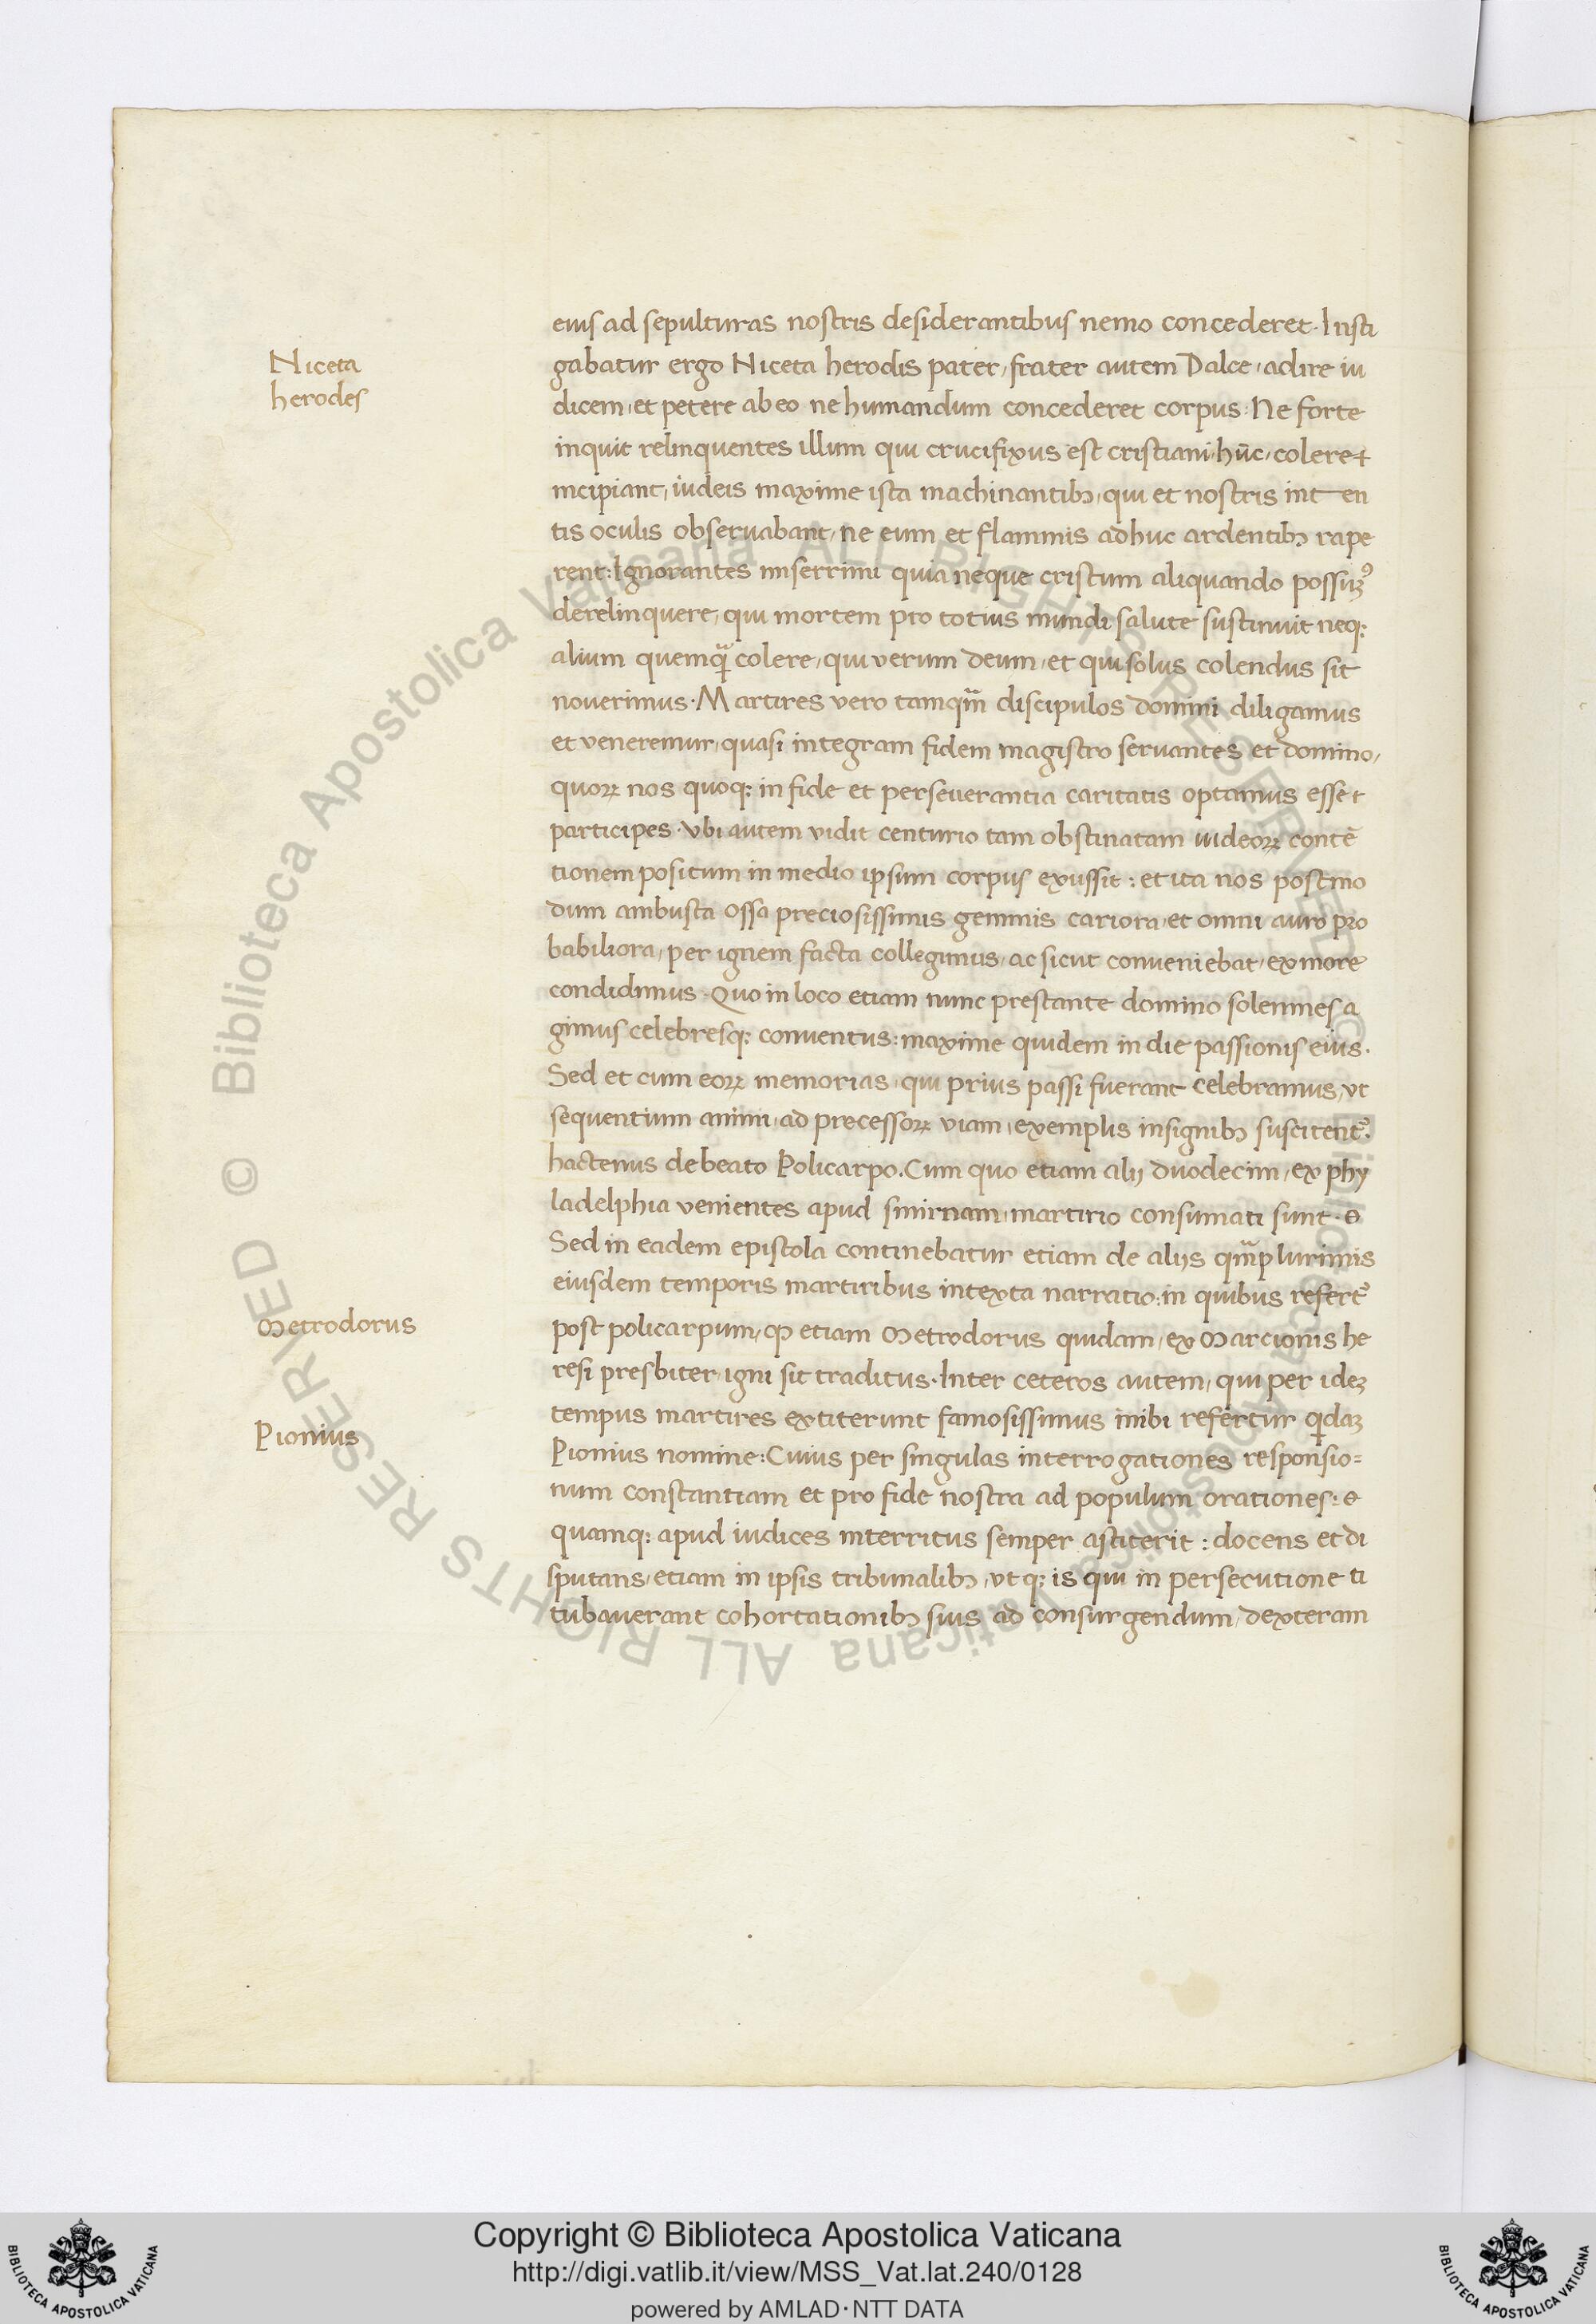 Niceta
herodes
eius ad sepulturas nostris desiderantibus nemo concederet. Insti
gabatur ergo Niceta herodis pater, frater autem Dalce, adire iu
dicem, et petere ab eo ne humandum concederet corpus: Ne forte
inquit relinquentes illum qui crucifixus est cristiani, hūc, colere
incipiant, iudeis maxime ista machinantibꝫ, qui et nostris inten
tis oculis observabant, ne eum et flammis adhuc ardentibꝫ rape
rent: Ignorantes miserrimi quia neque cristum aliquando possūꝫ
derelinquere, qui mortem pro totius mundi salute sustinuit neqꝫ
alium quemq̄ colere, qui verum deum, et qui solus colendus sit
noverimus. Martires vero tamqm̄ discipulos domini diligamus
et veneremur, quasi integram fidem magistro servantes et domino,
quoꝝ nos quoqꝫ in fide et perseverantia caritatis optamus esse
participes. Vbi autem vidit centurio tam obstinatam iudeoꝝ contē
tionem positum in medio ipsum corpus exussit: et ita nos postmo
dum ambusta ossa preciosissimis gemmis cariora, et omni auro pro
babiliora, per ignem facta collegimus, ac sicut conveniebat, ex more
condidimus. Quo in loco etiam nunc prestante domino solemnes a
gimus celebresqꝫ conventus: maxime quidem in die passionis eius.
Sed et cum eoꝝ memorias, qui prius passi fuerant celebramus, vt
sequentium animi, ad precessoꝝ viam, exemplis insignibꝫ suscitent᷑.
hactenus de beato Policarpo. Cum quo etiam alij duodecim, ex phy
ladelphia venientes apud smirnam, martirio consumati sunt.
Sed in eadem epistola continebatur etiam de alijs qm̄plurimis
eiusdem temporis martiribus intexta narratio: in quibus refert᷑
Metrodorus
post policarpum, ꝙ etiam Metrodorus quidam, ex Marcionis he
resi presbiter, igni sit traditus. Inter ceteros autem, qui per ideꝫ
tempus martires extiterunt famosissimus inibi refertur qdaꝫ
Pionius
Pionius nomine: Cuius per singulas interrogationes responsio=
num constantiam et pro fide nostra ad populum orationes:
quamqꝫ apud iudices interritus semper astiterit: docens et di
sputans, etiam in ipsis tribunalibꝫ, vtqꝫ is qui in persecutione ti
tubaverant cohortationibꝫ suis ad consurgendum, dexteram
© Biblioteca Apostolica Vaticana ALL RIGHTS RESERVED © Biblioteca Apostolica Vaticana ALL RIGHTS RESERVED
BIBLIOTECA APOSTOLICA VATICANA
Copyright © Biblioteca Apostolica Vaticana
http://digi.vatlib.it/view/MSS_Vat.lat.240/0128
powered by AMLAD·NTT DATA
BIBLIOTECA APOSTOLICA VATICANA